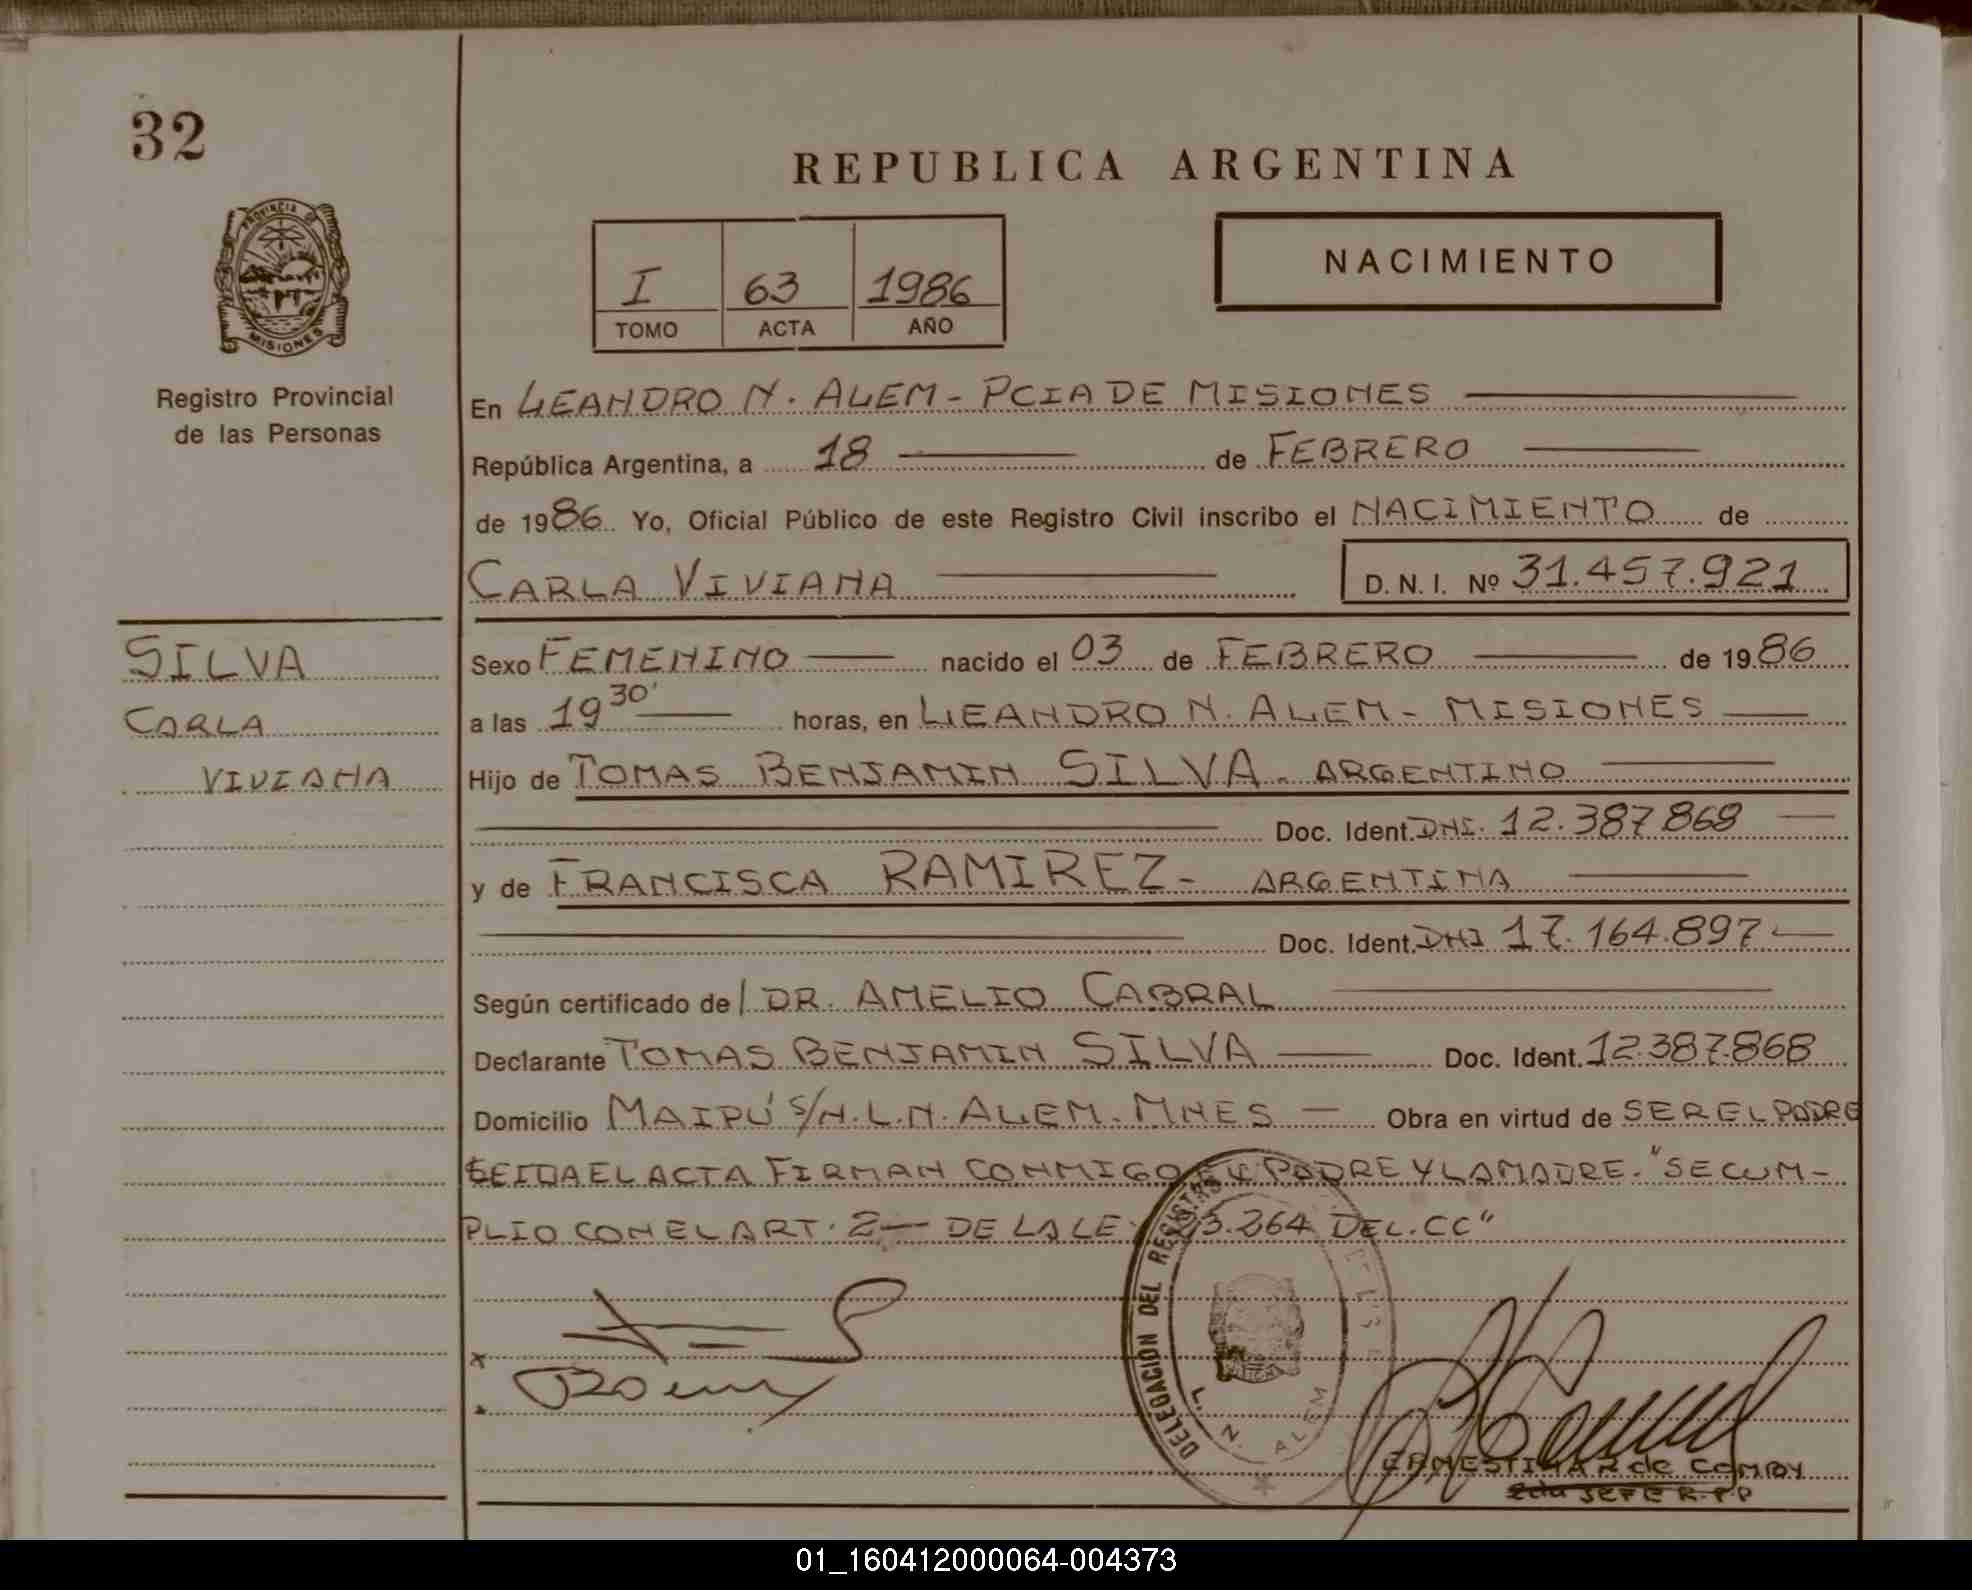 32
PROVINCIA DE
MISIONES
Registro Provincial
de las Personas
SILVA
CARLA
VIVIANA
REPUBLICA ARGENTINA
I 63 1986
TOMO ACTA AÑO
NACIMIENTO
En LEANDRO N. ALEM - PCIA DE MISIONES
República Argentina, a 18 de FEBRERO
de 1986 Yo, Oficial Público de este Registro Civil inscribo el NACIMIENTO de
CARLA VIVIANA D. N. I. Nº 31.457.921
Sexo FEMENINO nacido el 03 de FEBRERO de 1986
a las 19 30' horas, en LEANDRO N. ALEM - MISIONES
Hijo de TOMAS BENJAMIN SILVA - ARGENTINO
Doc. Ident. DNI. 12.387868
y de FRANCISCA RAMIREZ - ARGENTINA
Doc. Ident. DNI 17.164.897
Según certificado de / DR. AMELIO CABRAL
Declarante TOMAS BENJAMIN SILVA Doc. Ident. 12.387.868
Domicilio MAIPÚ S/N. L.N. ALEM - MNES Obra en virtud de SER EL PADRE
LEIDA EL ACTA FIRMAN CONMIGO PADRE Y LA MADRE. "SE CUM-
PLIO CON EL ART. 2 DE LA LEY 23.264 DEL CC"
DELEGACION DEL REGISTRO
L. N. ALEM
ERNESTINA R de
2da JEFE R.P.P
01_160412000064-004373